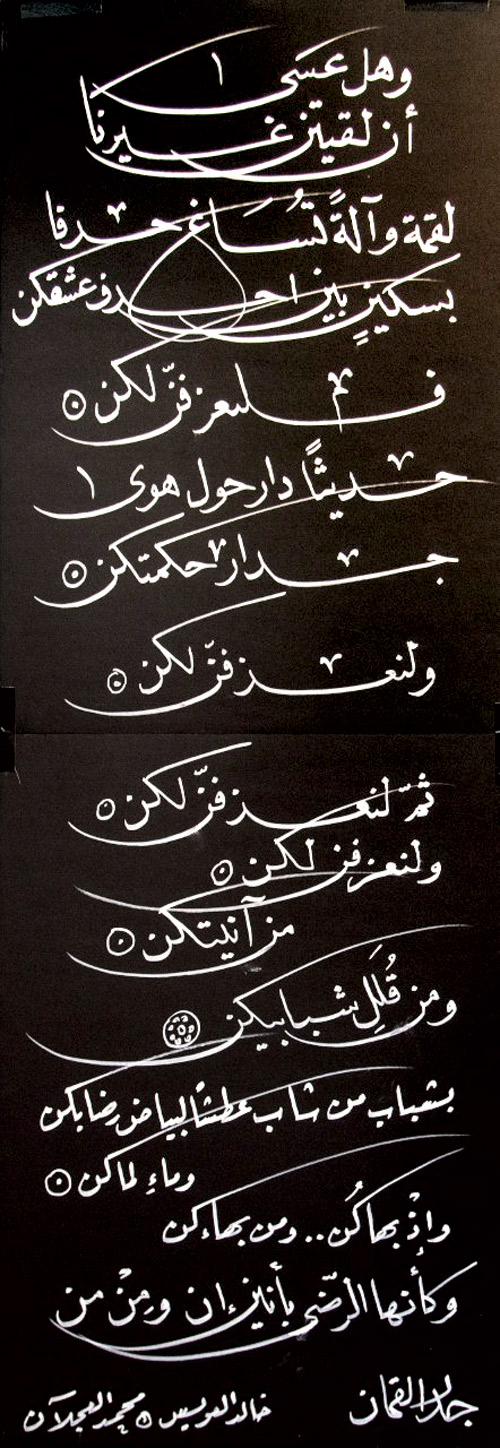 وهل عسى ا
أن لقيتن غيرنا
لقمة وآلةً تُسَاغ حدفا
بسكينٍ بين احدى عشقكن
لكن
حديثاً دار حول هوى ا
جدار حكمتكن
ولنعزفنّ لكن
ثمّ لنعزفنّ لكن
ولنعزفن لكن
من آنيتكن
ومن قُلَلِ شبابيكن
بشباب من شاب عطشاً لبياض رضابكن
وماءِ لماكن
وإذْ بهاكُن.. ومن بهاءكن
وكأنها الرضّى بأنين إن ومِنْ من
خالد العويس محمد العجلان